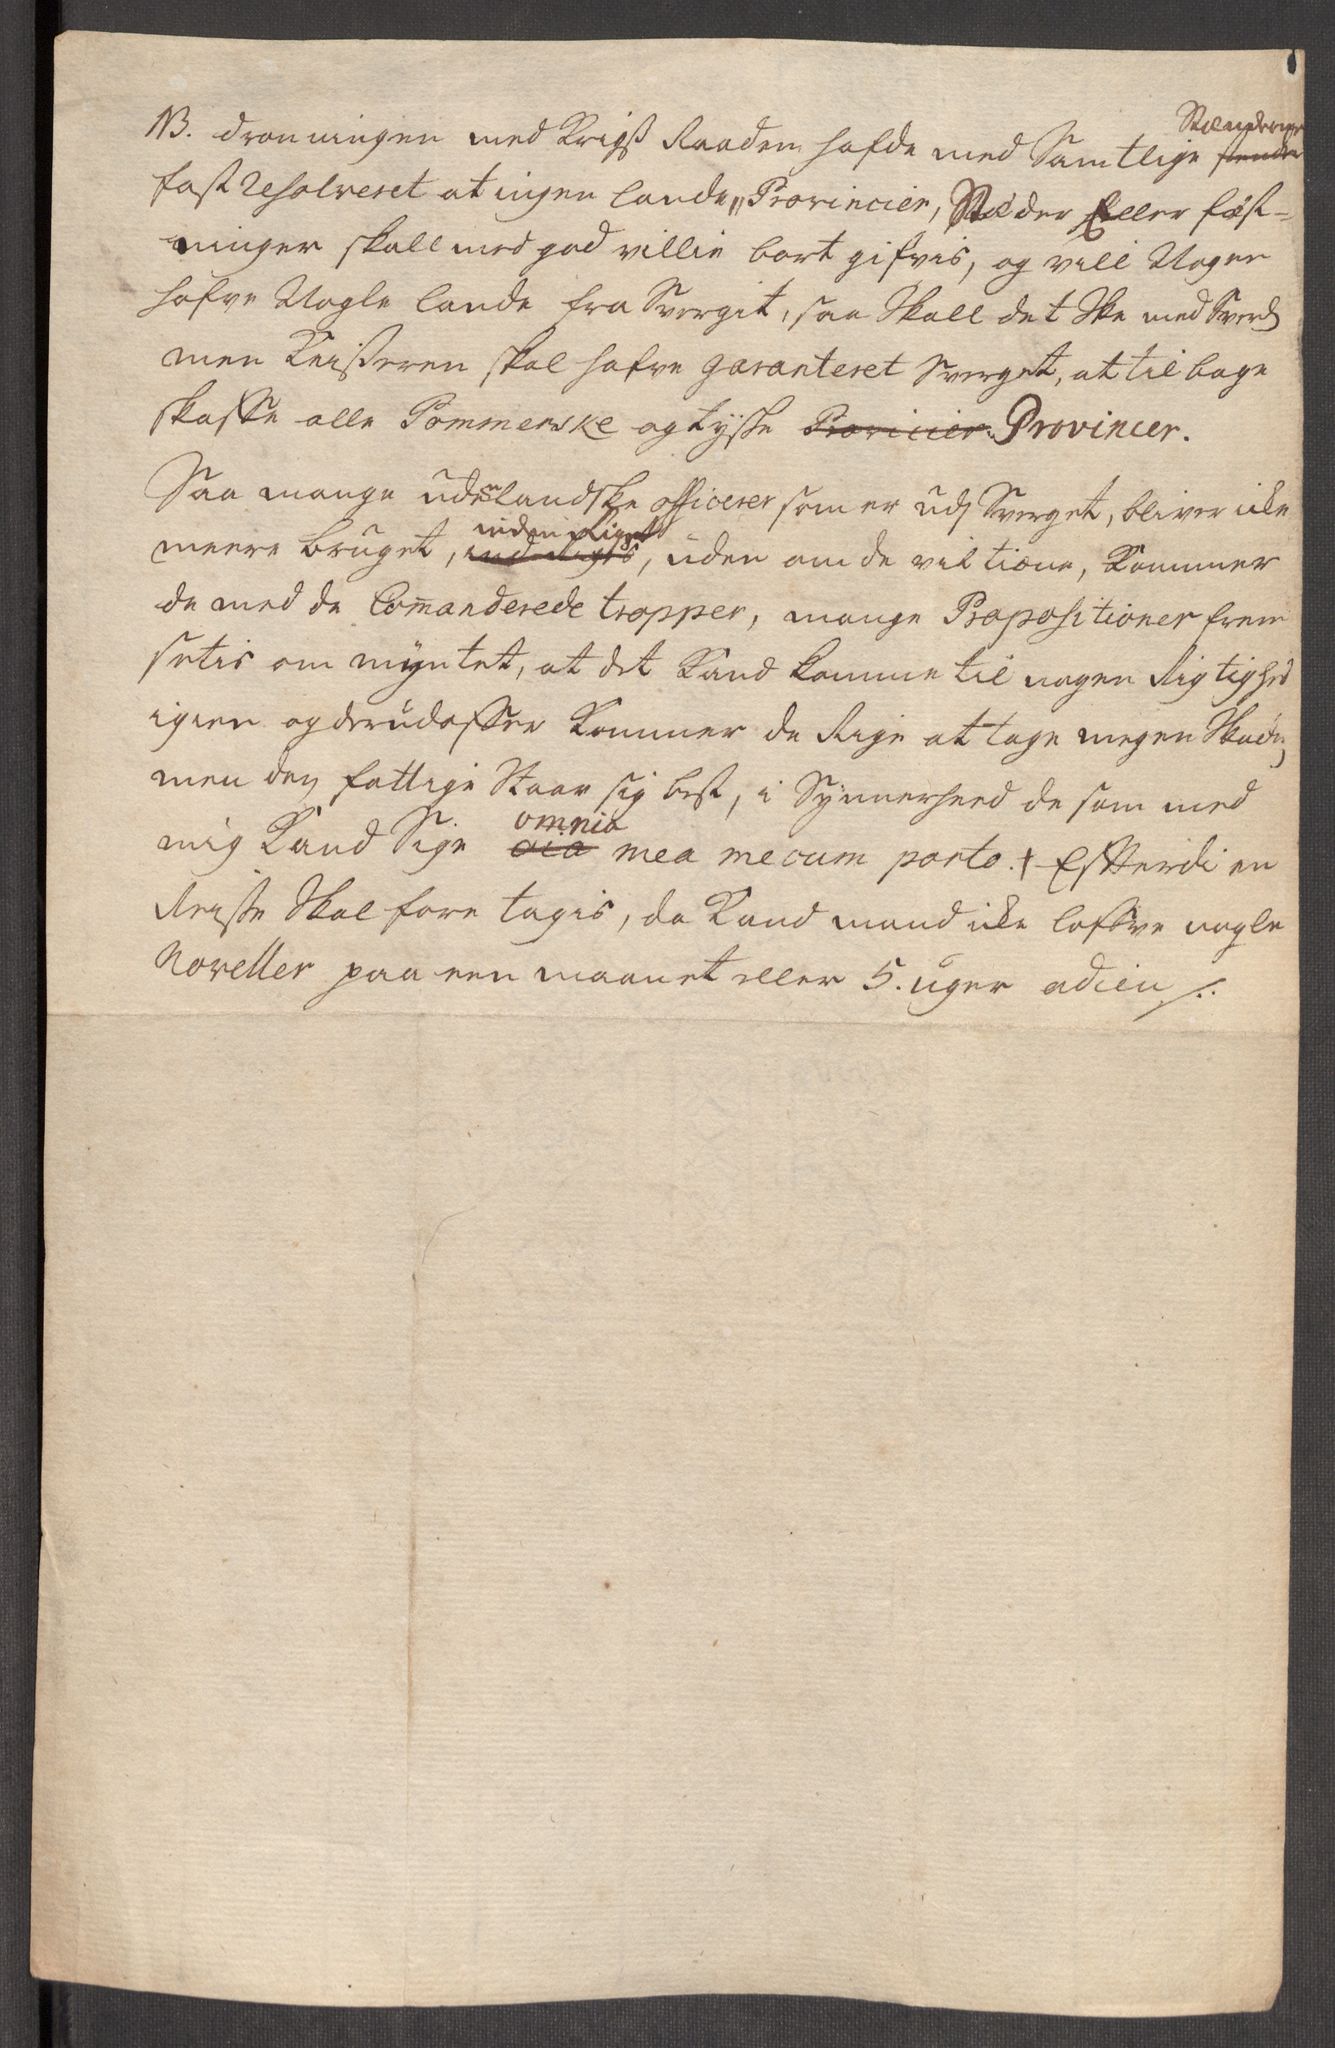 NB. dronningen med Krigs Raaden hafde med Samtlige Stændrene
fast resolveret at ingen lande, Provincier, Stæder Eller fæst-
ninger skall med god villie bort gifvis, og vill Nogen
hafve Nogle lande fra Sverget, saa Skall det Ske med Sverd
men Keisseren skal hafve garanteret Sverget, at tilbage
skaffe alle Pommerske og tydske Provicier. Provincer.
Saa mange udenlandske officerer som er udj Sverget, bliver icke
meere bruget, inden Riget, uden om de vil tiene, kommer
de med de Commanderede tropper, mange Propositioner frem
setis om myntet, at det Kand komme til nogen Rigtighed
igien og derudoffver kommer de Rige at tage megen Skade,
men den fattige Staar sig best, i Synnerheed de som med
mig Kand Sige oia omnia mea mecum porto. + Effterdi en
Reisse Skal foretagis, da Kand mand icke loffve nogle
Noveller paa een maanet eller 5. uger adieu ./.